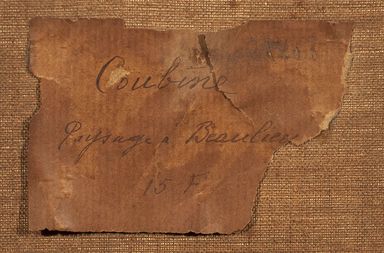 Coubine
Paysage à Beaulieu
15 F